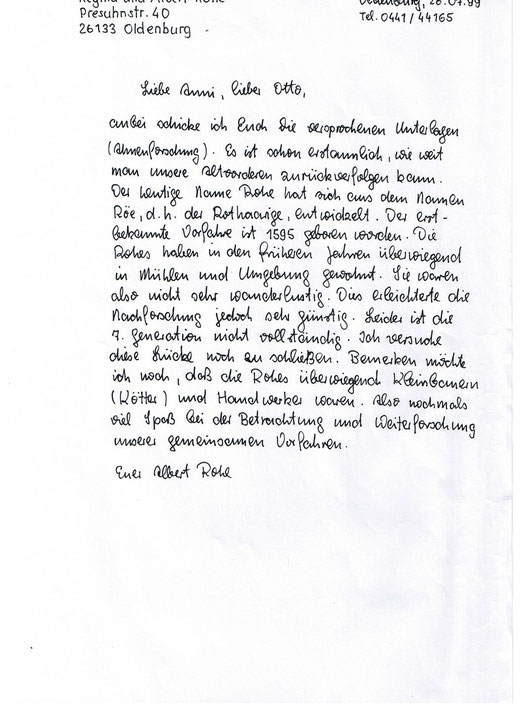 Regina und Albert Rohe
Presuhnstr. 40
26133 Oldenburg
Oldenburg, 26.07.99
Tel. 0441/44165
Liebe Anni, lieber Otto,
anbei schicke ich Euch die versprochenen Unterlagen
(Ahnenforschung). Es ist schon erstaunlich, wie weit
man unsere Altvorderen zurückverfolgen kann.
Der heutige Name Rohe hat sich aus dem Namen
Röe, d.h. der Rothaarige, entwickelt. Der erst-
bekannte Vorfahre ist 1595 geboren worden. Die
Rohes haben in den früheren Jahren überwiegend
in Mühlen und Umgebung gewohnt. Sie waren
also nicht sehr wanderlustig. Dies erleichterte die
Nachforschung jedoch sehr günstig. Leider ist die
7. Generation nicht vollständig. Ich versuche
diese Lücke noch zu schließen. Bemerken möchte
ich noch, daß die Rohes überwiegend Kleinbauern
(Kötter) und Handwerker waren. Also nochmals
viel Spaß bei der Betrachtung und Weiterforschung
unserer gemeinsamen Vorfahren.
Euer Albert Rohe